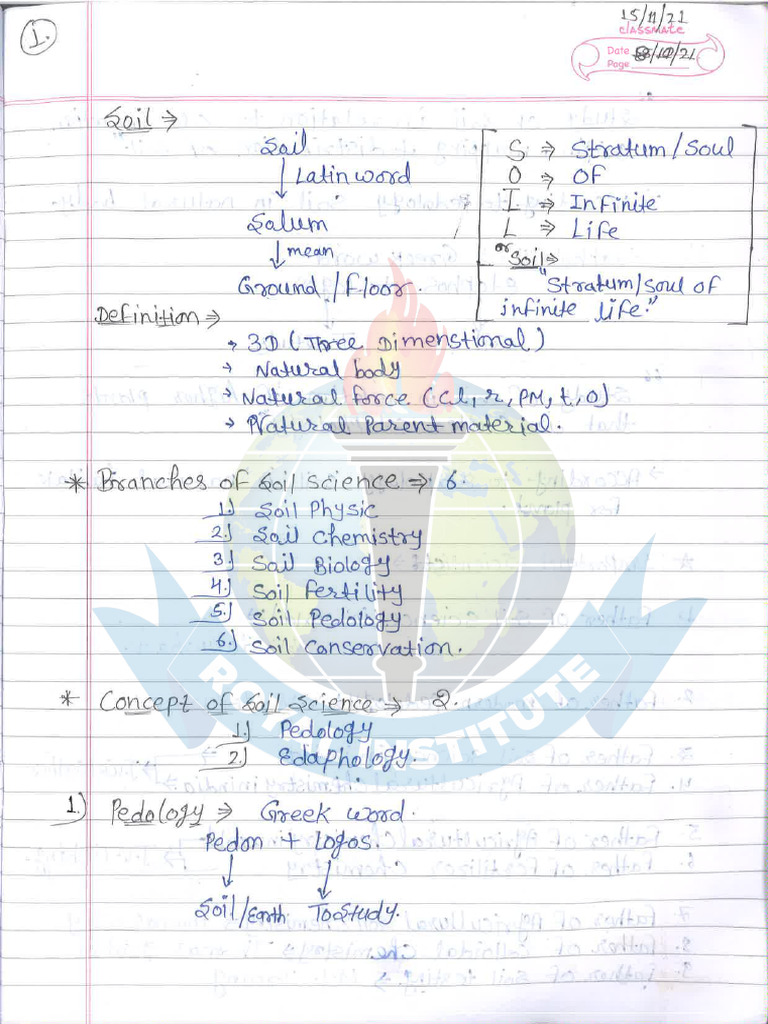 1.
15/11/21
classmate
Date 8/12/21
Page
Soil ⇒
Soil
↓ Latin word
Solum
↓ mean
Ground/floor.
S ⇒ Stratum/Soul
O ⇒ OF
I ⇒ Infinite
L ⇒ Life
or Soil ⇒
"Stratum/Soul of
infinite life."
Definition ⇒
→ 3D (Three Dimenstional)
→ Natural body
→ Natural force (Cl, r, PM, t, O)
→ Natural Parent material.
* Branches of Soil Science ⇒ 6.
1.) Soil Physic
2.) Soil Chemistry
3.) Soil Biology
4.) Soil Fertility
5.) Soil Pedology
6.) Soil Conservation.
* Concept of Soil Science ⇒ 2.
1.) Pedology
2.) Edaphology.
1.) Pedology ⇒ Greek word.
Pedon + logos.
↓ ↓
Soil/Earth To Study.
ROYAL INSTITUTE